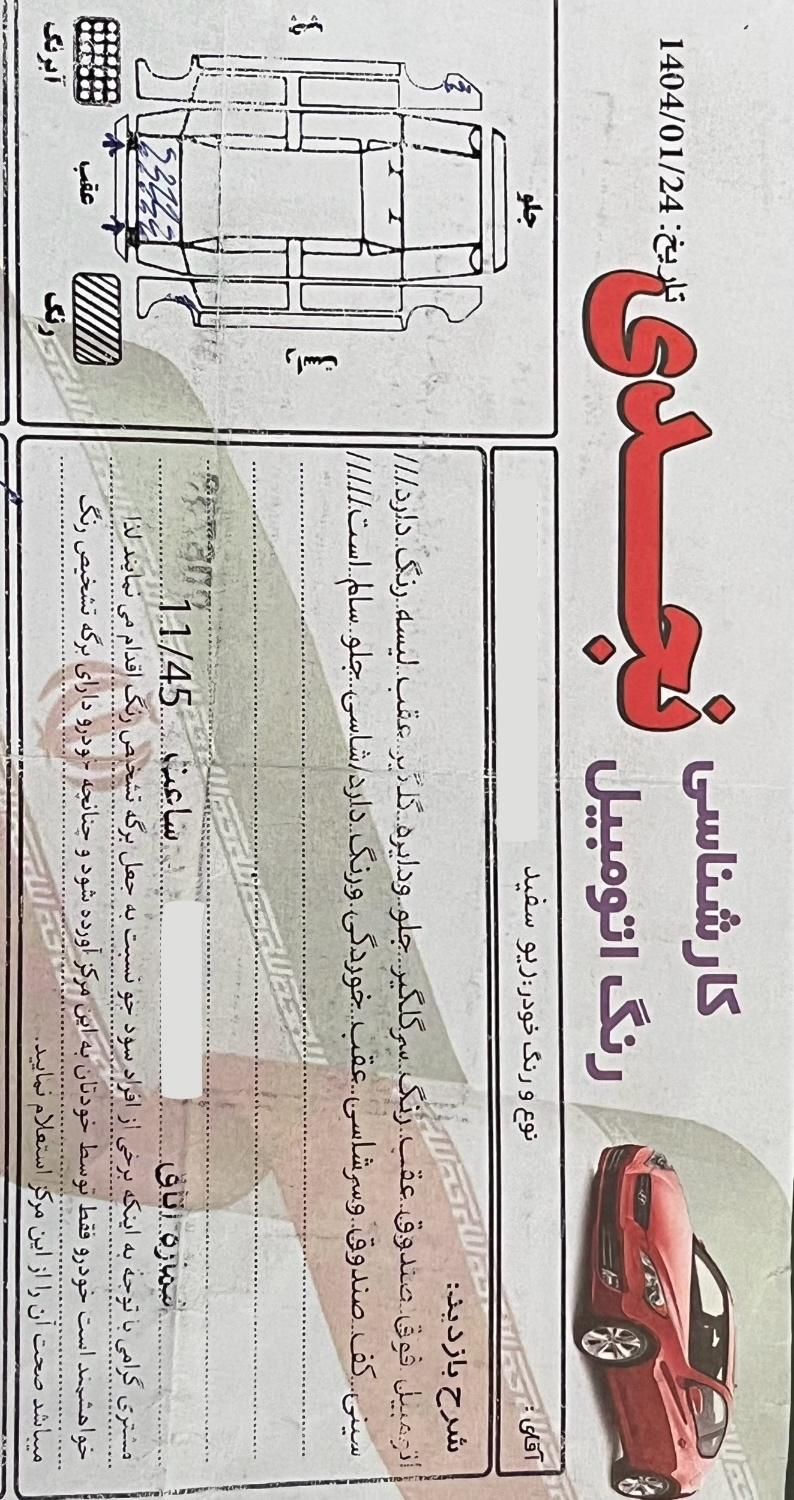 کارشناسی
رنگ اتومبیل
نجدی
تاریخ: 1404/01/24
آقای:
نوع و رنگ خودر:ریو سفید
شرح بازدید:
اتومبیل فوق صندوق عقب رنگ سرگلگیر جلو ودایره گلگیر عقب لیسه رنگ دارد///
سینی کف صندوق وسرشاسی عقب خوردگی ورنگ دارد/شاسی جلو سالم است/////
شماره اتاق
ساعت 11/45
مشتری گرامی با توجه به اینکه برخی از افراد سود جو نسبت به جعل برگه تشخص رنگ اقدام می نمایند لذا
خواهشمند است خودرو فقط توسط خودتان به این مرکز آورده شود و چنانچه خودرو دارای برگه تشخیص رنگ
میباشد صحت آن را از این مرکز استعلام نمایید.
جلو
راست
عقب
آبرنگ
رنگ